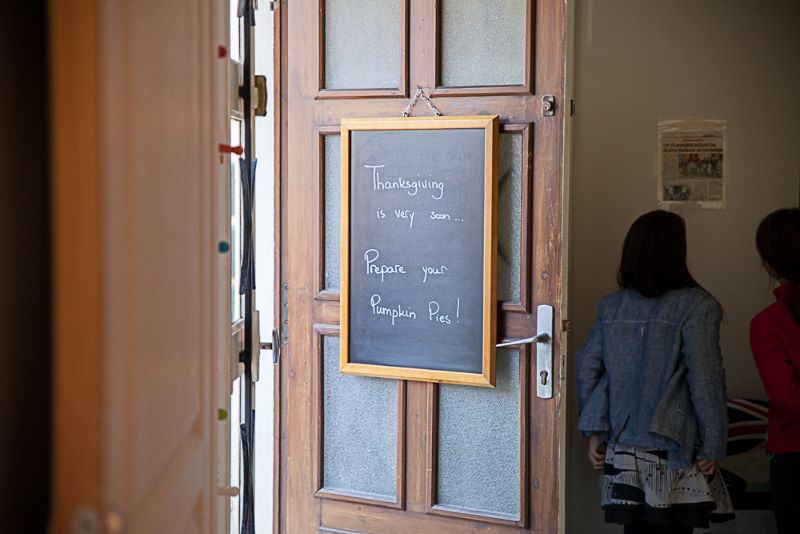 Thanksgiving
is very soon...
Prepare your
Pumpkin Pies!